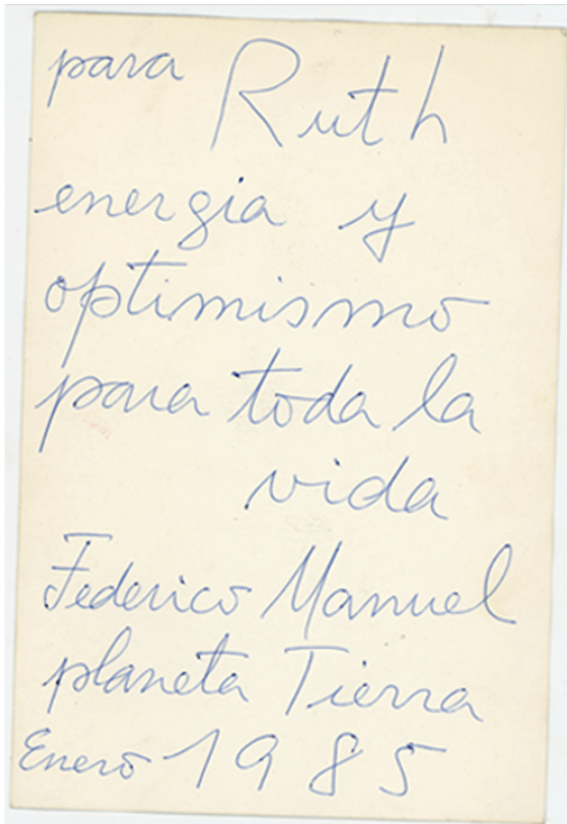 para Ruth
energia y
optimismo
para toda la
vida
Federico Manuel
planeta Tierra
Enero 1985